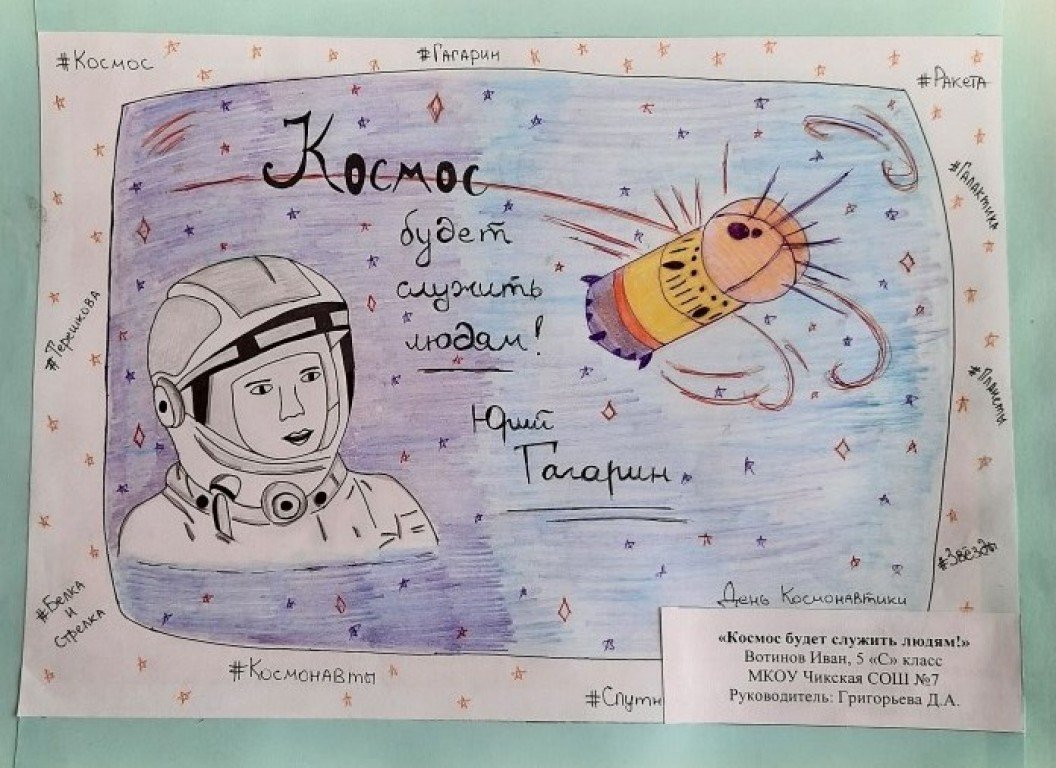 #Космос
#Гагарин
#Ракета
#Галактика
#Терешкова
Космос
будет
служить
людям!
Юрий
Гагарин
#Планеты
#Звёзды
#Белка
и
стрелка
День Космонавтики
#Космонавты
#Спутн
«Космос будет служить людям!»
Вотинов Иван, 5 «С» класс
МКОУ Чикская СОШ №7
Руководитель: Григорьева Д.А.